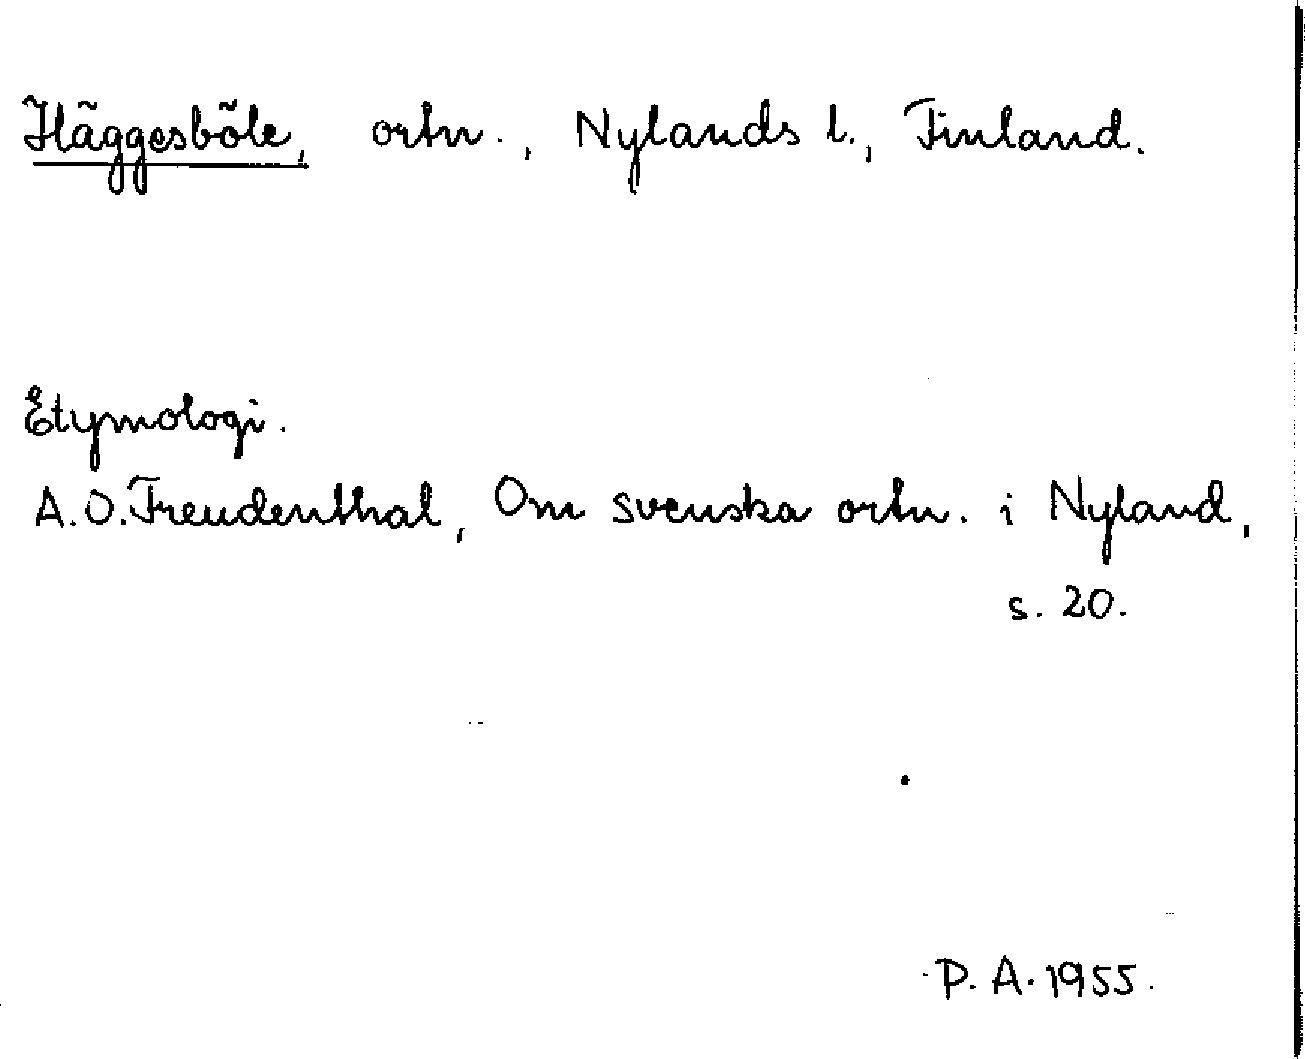 Häggesböle, ortn., Nylands l., Finland.
Etymologi.
A.O. Freudenthal, Om svenska ortn. i Nyland,
s. 20.
P. A. 1955.